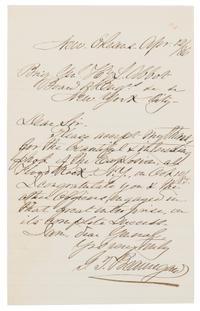 New Orleans Apr. 12/86
Brig Gn H. L. Abbot
New York City.
Dear Sir.
Please accept my thanks
for the beautiful & interesting
proof of the Explosion at
Flood Rock N.Y. on Oct 10/85
I congratulate you & the
other Officers engaged in
that great enterprise, on
its complete success.
I am dear General
Yours very truly
G. T. Beauregard